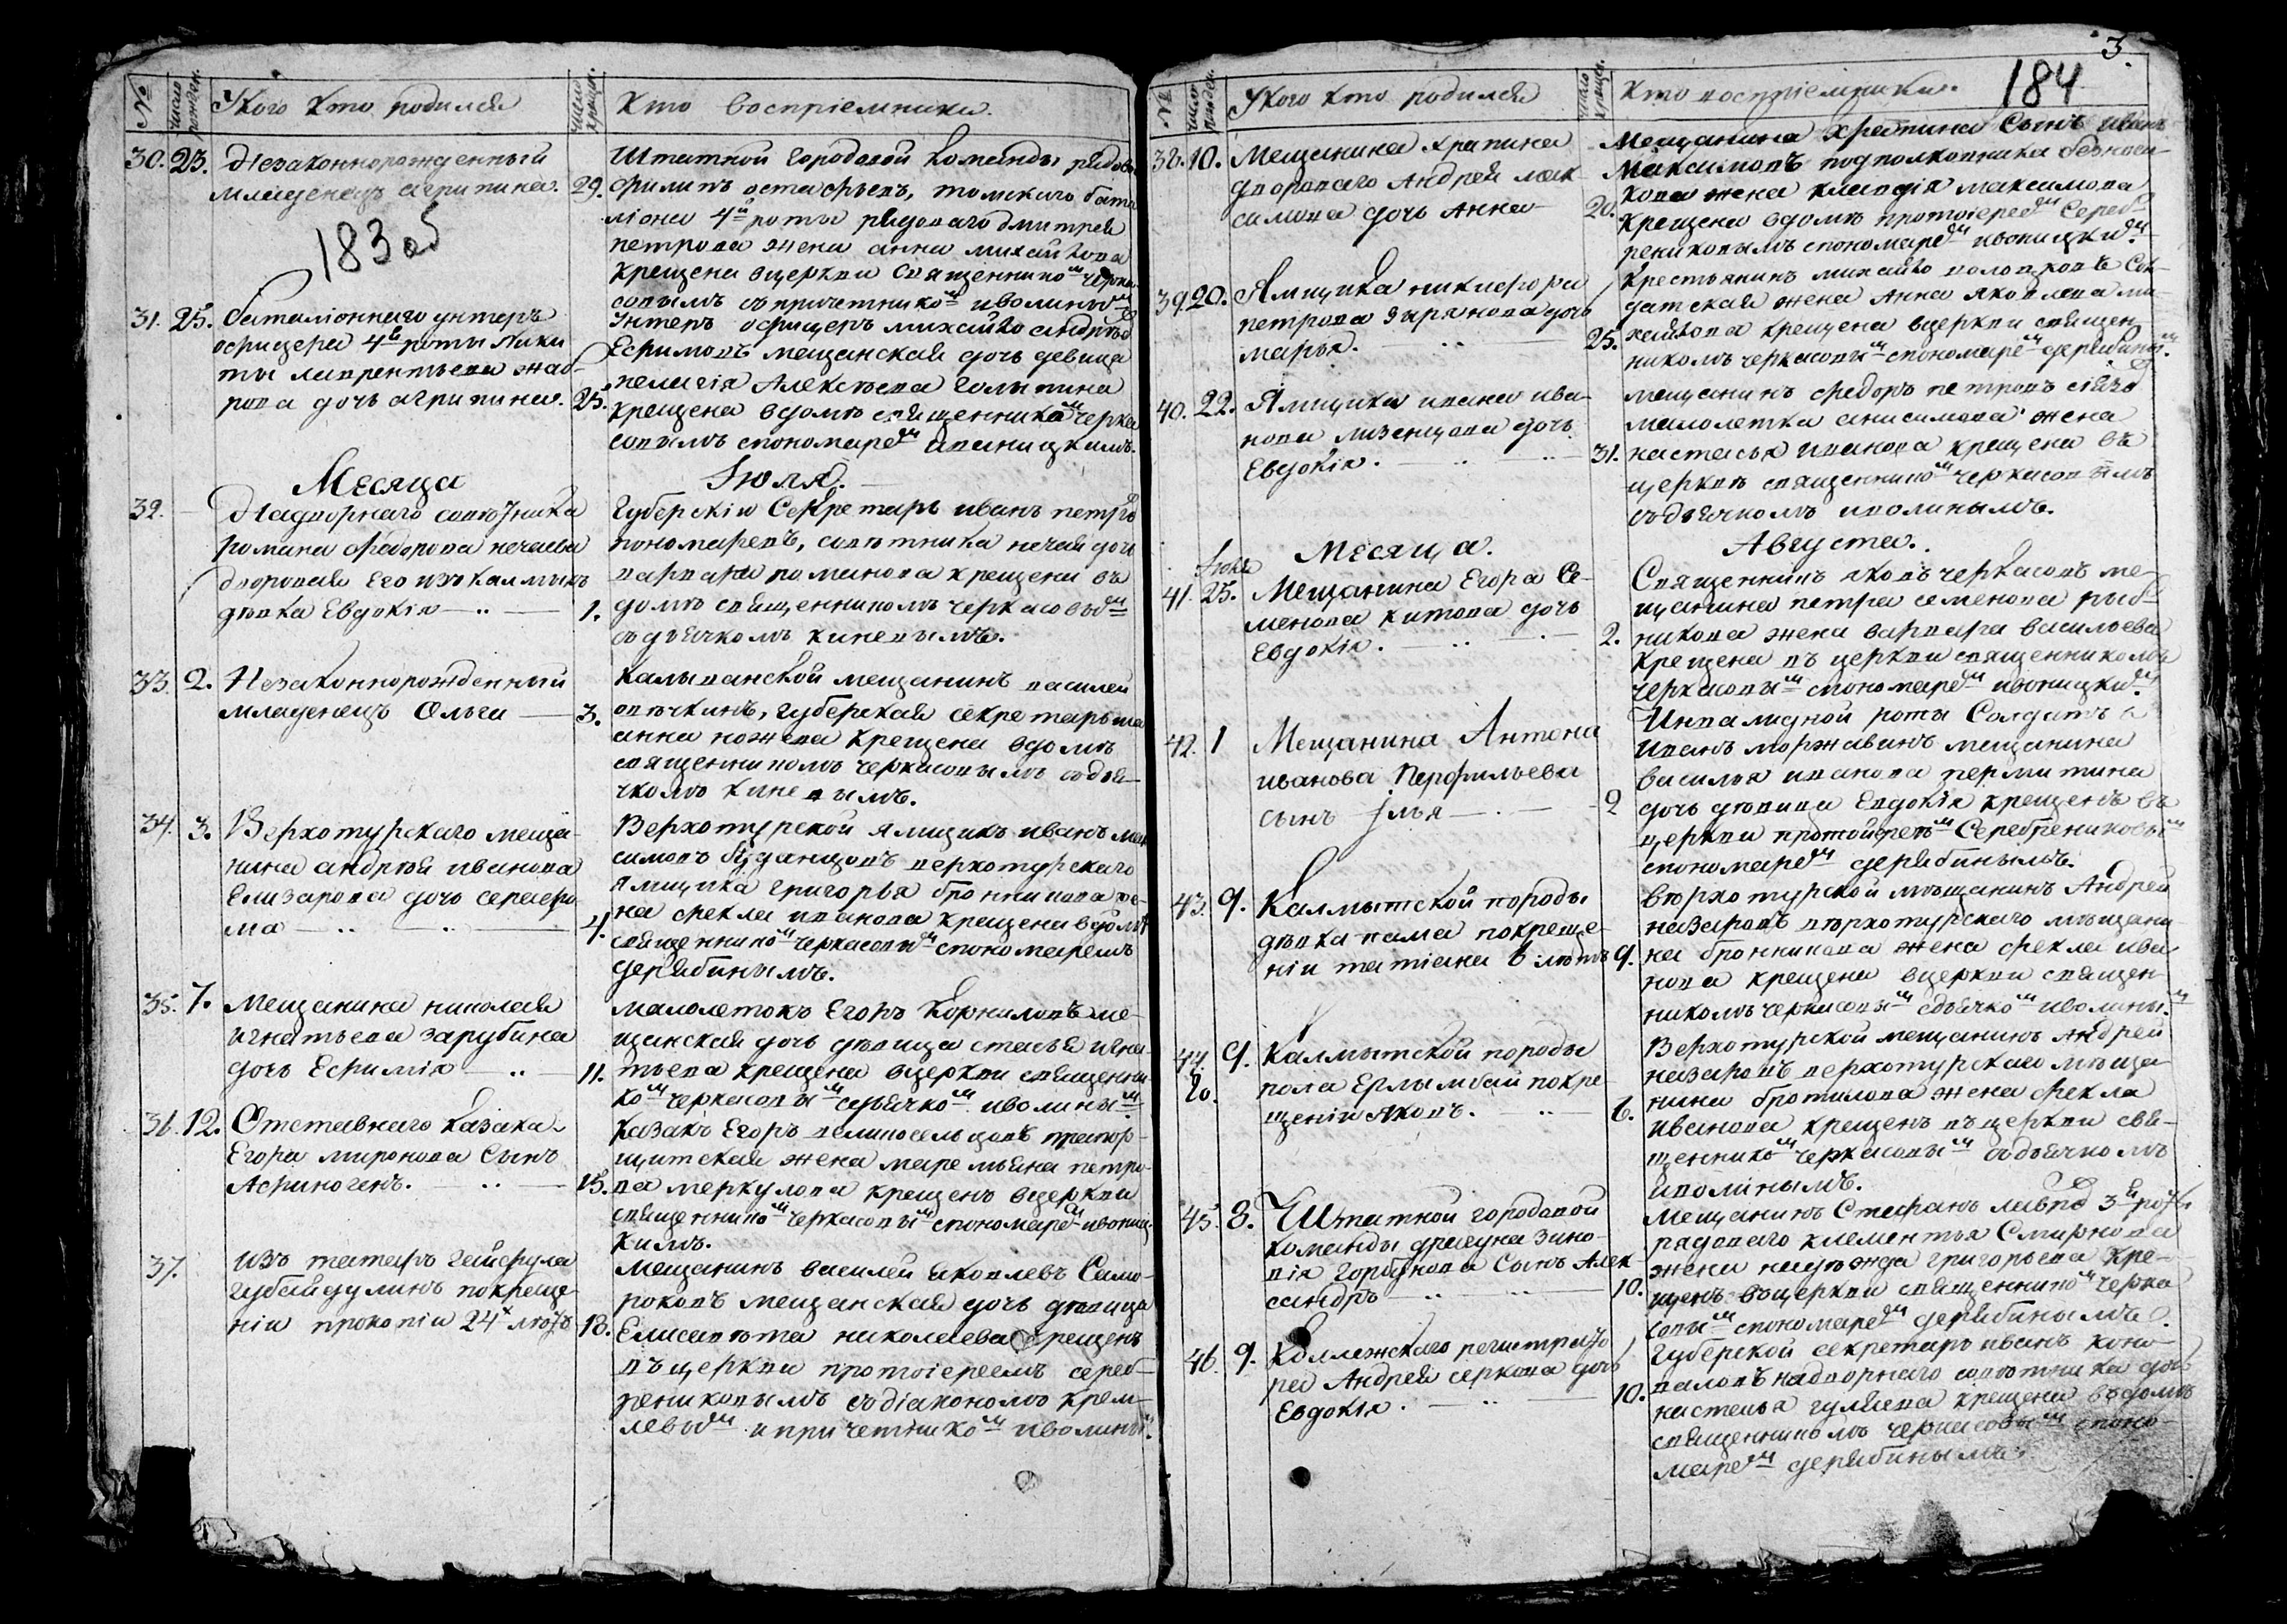 №
число рожден.
У кого кто родился
число крещен.
Кто воспріемники.
30. 23. Незаконнорожденный
младенецъ агрипина. 29.
183 об
Штатной городовой команды рядовой
филипъ остафьевъ, томскаго бата
ліона 4й роты рядоваго дмитрея
петрова жена анна михайлова
крещена вцеркви священникомъ черка
совымъ съ причетникомъ иволинымъ
31. 25. баталіоннаго унтеръ
офицера 4й роты Ники
ты лаврентьева
рова дочь агрипина. 25.
Унтеръ офицеръ михайло андреевъ
Ефимовъ мещанская дочь девица
пелагія Алексѣева голыгина
крещена вдомѣ священникомъ черка
совымъ спономаремъ иваницкимъ.
Месяца Іюля.
32. Надворнаго совѣтника
романа федорова нечаева
дворовая Его изъ калмыкъ
дѣвка Евдокія 1.
Губерскій Секретарь иванъ петровъ
пономаревъ, совѣтника нечая дочь
варвара романова крещена въ
домѣ священникомъ черкасовымъ
съдьячкомъ киневымъ.
33. 2. Незаконнорожденный
младенецъ Ольга 3.
Калыванской мещанинъ василей
овѣчкинъ, губерская секретарша
анна ножева крещена вдомѣ
священникомъ черкасовымъ содья-
чкомъ киневымъ.
34. 3. Верхотурскаго меща-
нина андрѣя иванова
Елизарова дочь серафи
ма 4.
Верхотурской ямщикъ иванъ мак
симовъ буданцовъ верхотурскаго
ямщика григорья бронникова же
на фекла иванова крещена вдомѣ
священникомъ черкасовымъ спономаремъ
дерябинымъ.
35. 7. Мещанина николая
игнатьева зарубина
дочь Ефимія 11.
малолетокъ Егоръ Корниловъ ме-
щанская дочь дѣвица стасья игна-
тьева крещена вцеркви священни-
комъ черкасовымъ сдьячкомъ иволинымъ.
36. 12. Отставнаго казака
Егора миронова Сынъ
Афиногенъ. 15.
Казакъ Егоръ велиносельцовъ прапор-
щитская жена маремьяна петро-
ва меркулова крещенъ вцеркви
священникомъ черкасовымъ спономаремъ ивониц-
кимъ.
37. изъ татаръ гайфула
губайдулинъ покреще
ніи прокопіи 24х лѣтъ 18.
Мещанинъ василей яковлевъ Само-
роковъ мещанская дочь дѣвица
Елисавѣта николаева крещенъ
въ церкви протоіереемъ сереб-
рениковымъ съдіакономъ крем-
левымъ и причетникомъ иволинымъ.
3.
184
№
число рожден.
У кого кто родился
число крещен.
Кто воспріемники.
38. 10. Мещанина храпина
двороваго Андрея мак
симова дочь Анна 20.
Мещанина храпина Сынъ иванъ
Максимовъ подполковника безноси-
кова жена клавдія максимова
крещена вдомѣ протоіереемъ Сереб-
рениковымъ спономаремъ ивоницкимъ.
39. 20. Ямщика никифора
петрова зырянова дочь
марья. 25.
Крестьянинъ михайло волковъ Сол-
датская жена Анна яковлева ми
хайлова крещена вцеркви священ
никомъ черкасовымъ спономаремъ дерябинымъ.
40. 22. Ямщика ивана ива-
нова мизенцова дочь
Евдокія. 31.
мещанинъ федоръ петровъ
малолетка анисимова жена
настасья иванова крещена въ
церквѣ священникомъ черкасовымъ
съдьячкомъ иволинымъ.
Месяца. Августа.
Іюля
41. 25. Мещанина Егора Се-
менова китова дочь
Евдокія. 2.
Священникъ яковъ черкасовъ ме-
щанина петра семенова рыб-
никова жена варвара васильева
крещена въ церкви священникомъ
черкасовымъ спономаремъ ивоницкимъ.
42. 1 Мещанина Антона
иванова Перфильева
сынъ Ілья 2
Инвалидной роты Солдатъ
иванъ моржаванъ мещанина
василья иванова пермитина
дочь дѣвица Евдокія крещенъ въ
церкви протоіереемъ Серебрениковымъ
спономаремъ дерябинымъ.
43. 9. Калмытской породы
дѣвка нама покреще-
ніи татіана 6 лѣтъ 9.
верхотурской мѣщанинъ Андрей
назаровъ верхотурскаго мѣщани-
на бронникова жена фекла ива
нова крещена вцеркви священ-
никомъ черкасовымъ сдьячкомъ иволинымъ.
44. 9. Калмытской породы
20. пола Ерлымбай покре
щеніи яковъ. 6.
Верхотурской мещанинъ Андрей
назаровъ верхотурскаго мѣща-
нина жена фекла
иванова крещенъ въцеркви свя-
щенникомъ черкасовымъ съдьячкомъ
иволинымъ.
45. 8. Штатной городовой
команды драгуна зино-
вія горбунова Сынъ Алек
сандръ 10.
Мещанинъ Стефанъ 3й роты
рядоваго клементья Смирнова
жена надѣжда григорьева кре-
щенъ въцеркви священникомъ черка
совымъ спономаремъ дерябинымъ.
46. 9. Коллежскаго регистрато
ра Андрея серкова дочь
Евдокія. 10.
Губерской секретарь иванъ коно-
валовъ надворнаго совѣтника дочь
настасья гуляева крещена въдомѣ
священникомъ черкасовымъ споно-
маремъ дерябинымъ.